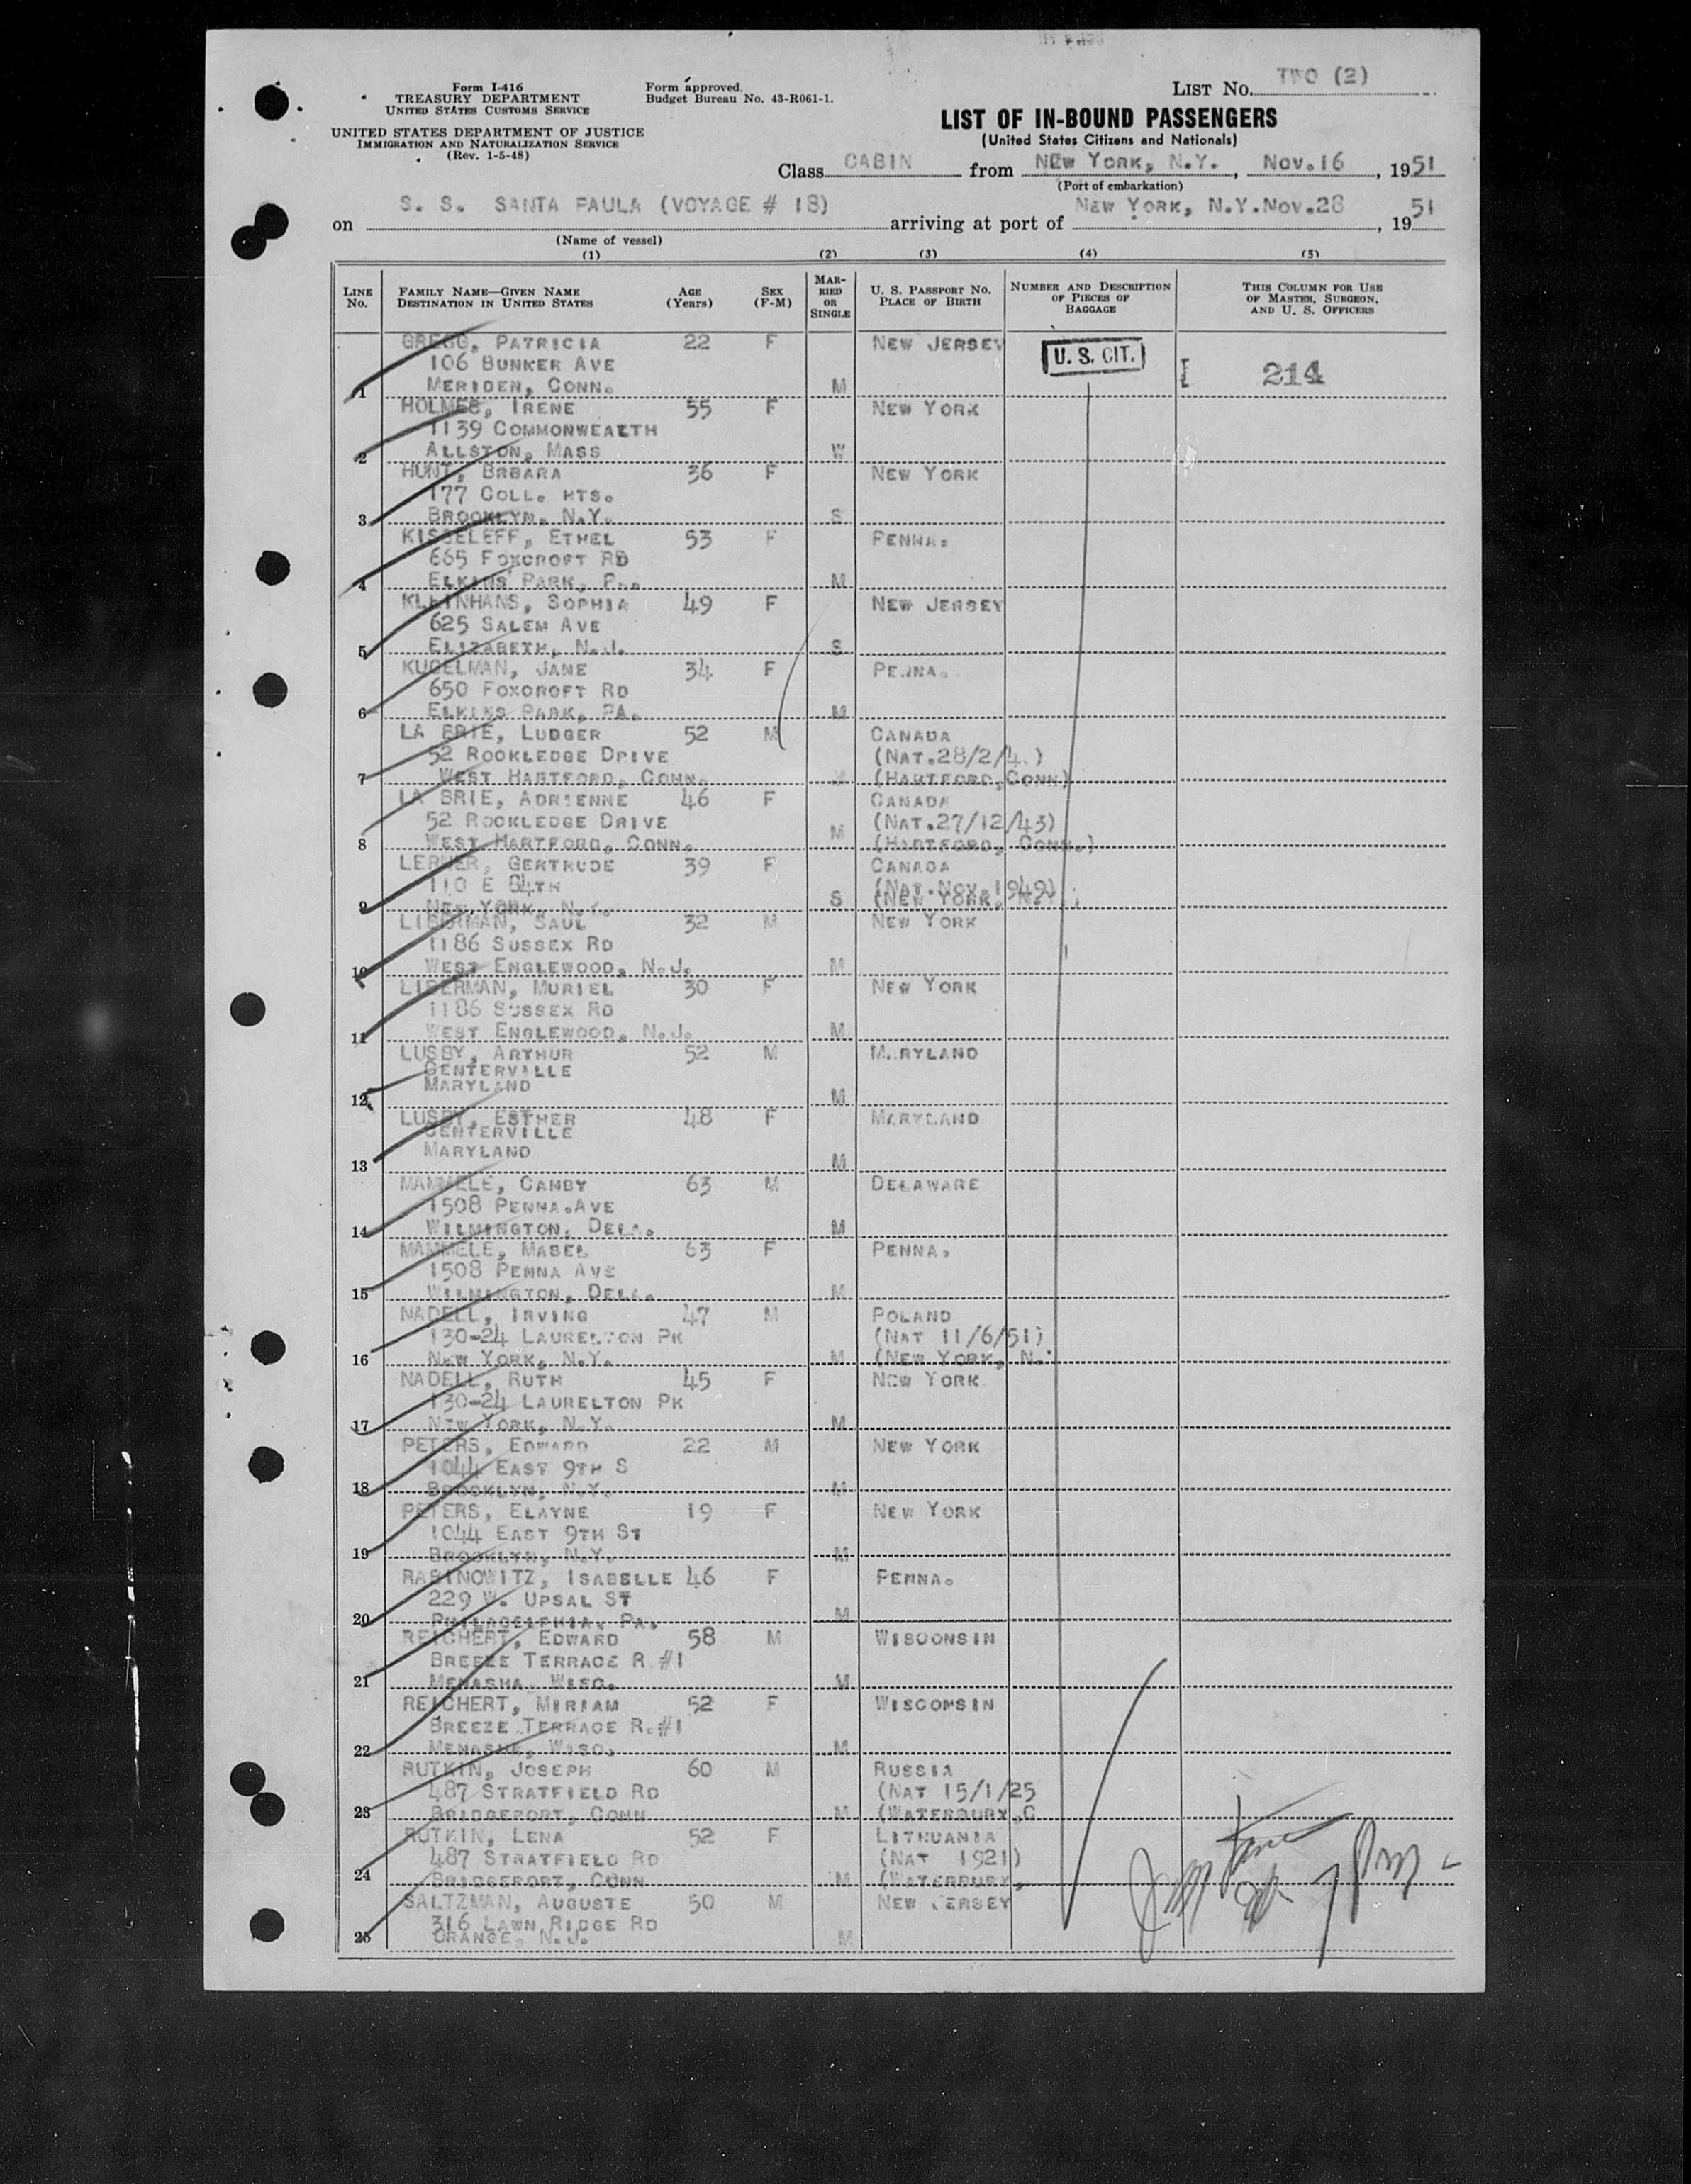 Form I-416
TREASURY DEPARTMENT
UNITED STATES CUSTOMS SERVICE
UNITED STATES DEPARTMENT OF JUSTICE
IMMIGRATION AND NATURALIZATION SERVICE
(Rev. 1-5-48)
Form approved.
Budget Bureau No. 43-R061-1.
LIST No. TWO (2)
LIST OF IN-BOUND PASSENGERS
(United States Citizens and Nationals)
Class CABIN from NEW YORK, N.Y., Nov.16, 1951
(Port of embarkation)
on S. S. SANTA PAULA (VOYAGE # 18) arriving at port of NEW YORK, N.Y. Nov.28, 1951
(Name of vessel)
(1) (2) (3) (4) (5)
LINE No. FAMILY NAME—GIVEN NAME DESTINATION IN UNITED STATES AGE (Years) SEX (F-M) MARRIED OR SINGLE U. S. PASSPORT NO. PLACE OF BIRTH NUMBER AND DESCRIPTION OF PIECES OF BAGGAGE THIS COLUMN FOR USE OF MASTER, SURGEON, AND U. S. OFFICERS
GREGG, PATRICIA 22 F NEW JERSEY U. S. CIT.
106 BUNKER AVE 214
1 MERIDEN, CONN. M
HOLMES, IRENE 55 F NEW YORK
1139 COMMONWEALTH
2 ALLSTON, MASS W
HUNT, BRBARA 36 F NEW YORK
177 COLL. HTS.
3 BROOKLYN, N.Y. S
KISSELEFF, ETHEL 53 F PENNA.
665 FOXCROFT RD
4 ELKINS PARK, PA. M
KLEINHANS, SOPHIA 49 F NEW JERSEY
625 SALEM AVE
5 ELIZABETH, N.J. S
KUGELMAN, JANE 34 F PENNA.
650 FOXCROFT RD
6 ELKINS PARK, PA. M
LA BRIE, LUDGER 52 M CANADA
52 ROCKLEDGE DRIVE (NAT.28/2/4 )
7 WEST HARTFORD, CONN. (HARTFORD, CONN)
LA BRIE, ADRIENNE 46 F CANADA
52 ROCKLEDGE DRIVE (NAT.27/12/43)
8 WEST HARTFORD, CONN. M (HARTFORD, CONN.)
LERNER, GERTRUDE 39 F CANADA
110 E 84TH (NAT.NOV.1949)
9 NEW YORK, N.Y. S (NEW YORK, N.Y.)
LIBERMAN, SAUL 32 M NEW YORK
1186 SUSSEX RD
10 WEST ENGLEWOOD, N.J. M
LIBERMAN, MURIEL 30 F NEW YORK
1186 SUSSEX RD
11 WEST ENGLEWOOD, N.J. M
LUSBY, ARTHUR 52 M MARYLAND
CENTERVILLE
12 MARYLAND M
LUSBY, ESTHER 48 F MARYLAND
CENTERVILLE
13 MARYLAND M
MAMMELE, CANBY 63 M DELAWARE
1508 PENNA.AVE
14 WILMINGTON, DELA. M
MAMMELE, MABEL 63 F PENNA.
1508 PENNA AVE
15 WILMINGTON, DELA. M
NADELL, IRVING 47 M POLAND
130-24 LAURELTON PK (NAT 11/6/51)
16 NEW YORK, N.Y. M (NEW YORK, N.
NADELL, RUTH 45 F NEW YORK
130-24 LAURELTON PK
17 NEW YORK, N.Y. M
PETERS, EDWARD 22 M NEW YORK
1044 EAST 9TH S
18 BROOKLYN, N.Y. M
PETERS, ELAYNE 19 F NEW YORK
1044 EAST 9TH ST
19 BROOKLYN, N.Y. M
RABINOWITZ, ISABELLE 46 F PENNA.
229 W. UPSAL ST
20 PHILADELPHIA, PA. M
REICHERT, EDWARD 58 M WISCONSIN
BREEZE TERRACE R #1
21 MENASHA, WISC. M
REICHERT, MIRIAM 52 F WISCONSIN
BREEZE TERRACE R.#1
22 MENASHA, WISC. M
RUTKIN, JOSEPH 60 M RUSSIA
487 STRATFIELD RD (NAT 15/1/25
23 BRIDGEPORT, CONN M (WATERBURY,C
RUTKIN, LENA 52 F LITHUANIA
487 STRATFIELD RD (NAT 1921)
24 BRIDGEPORT, CONN M (WATERBURY,
SALTZMAN, AUGUSTE 50 M NEW JERSEY
316 LAWN RIDGE RD
25 ORANGE, N.J. M